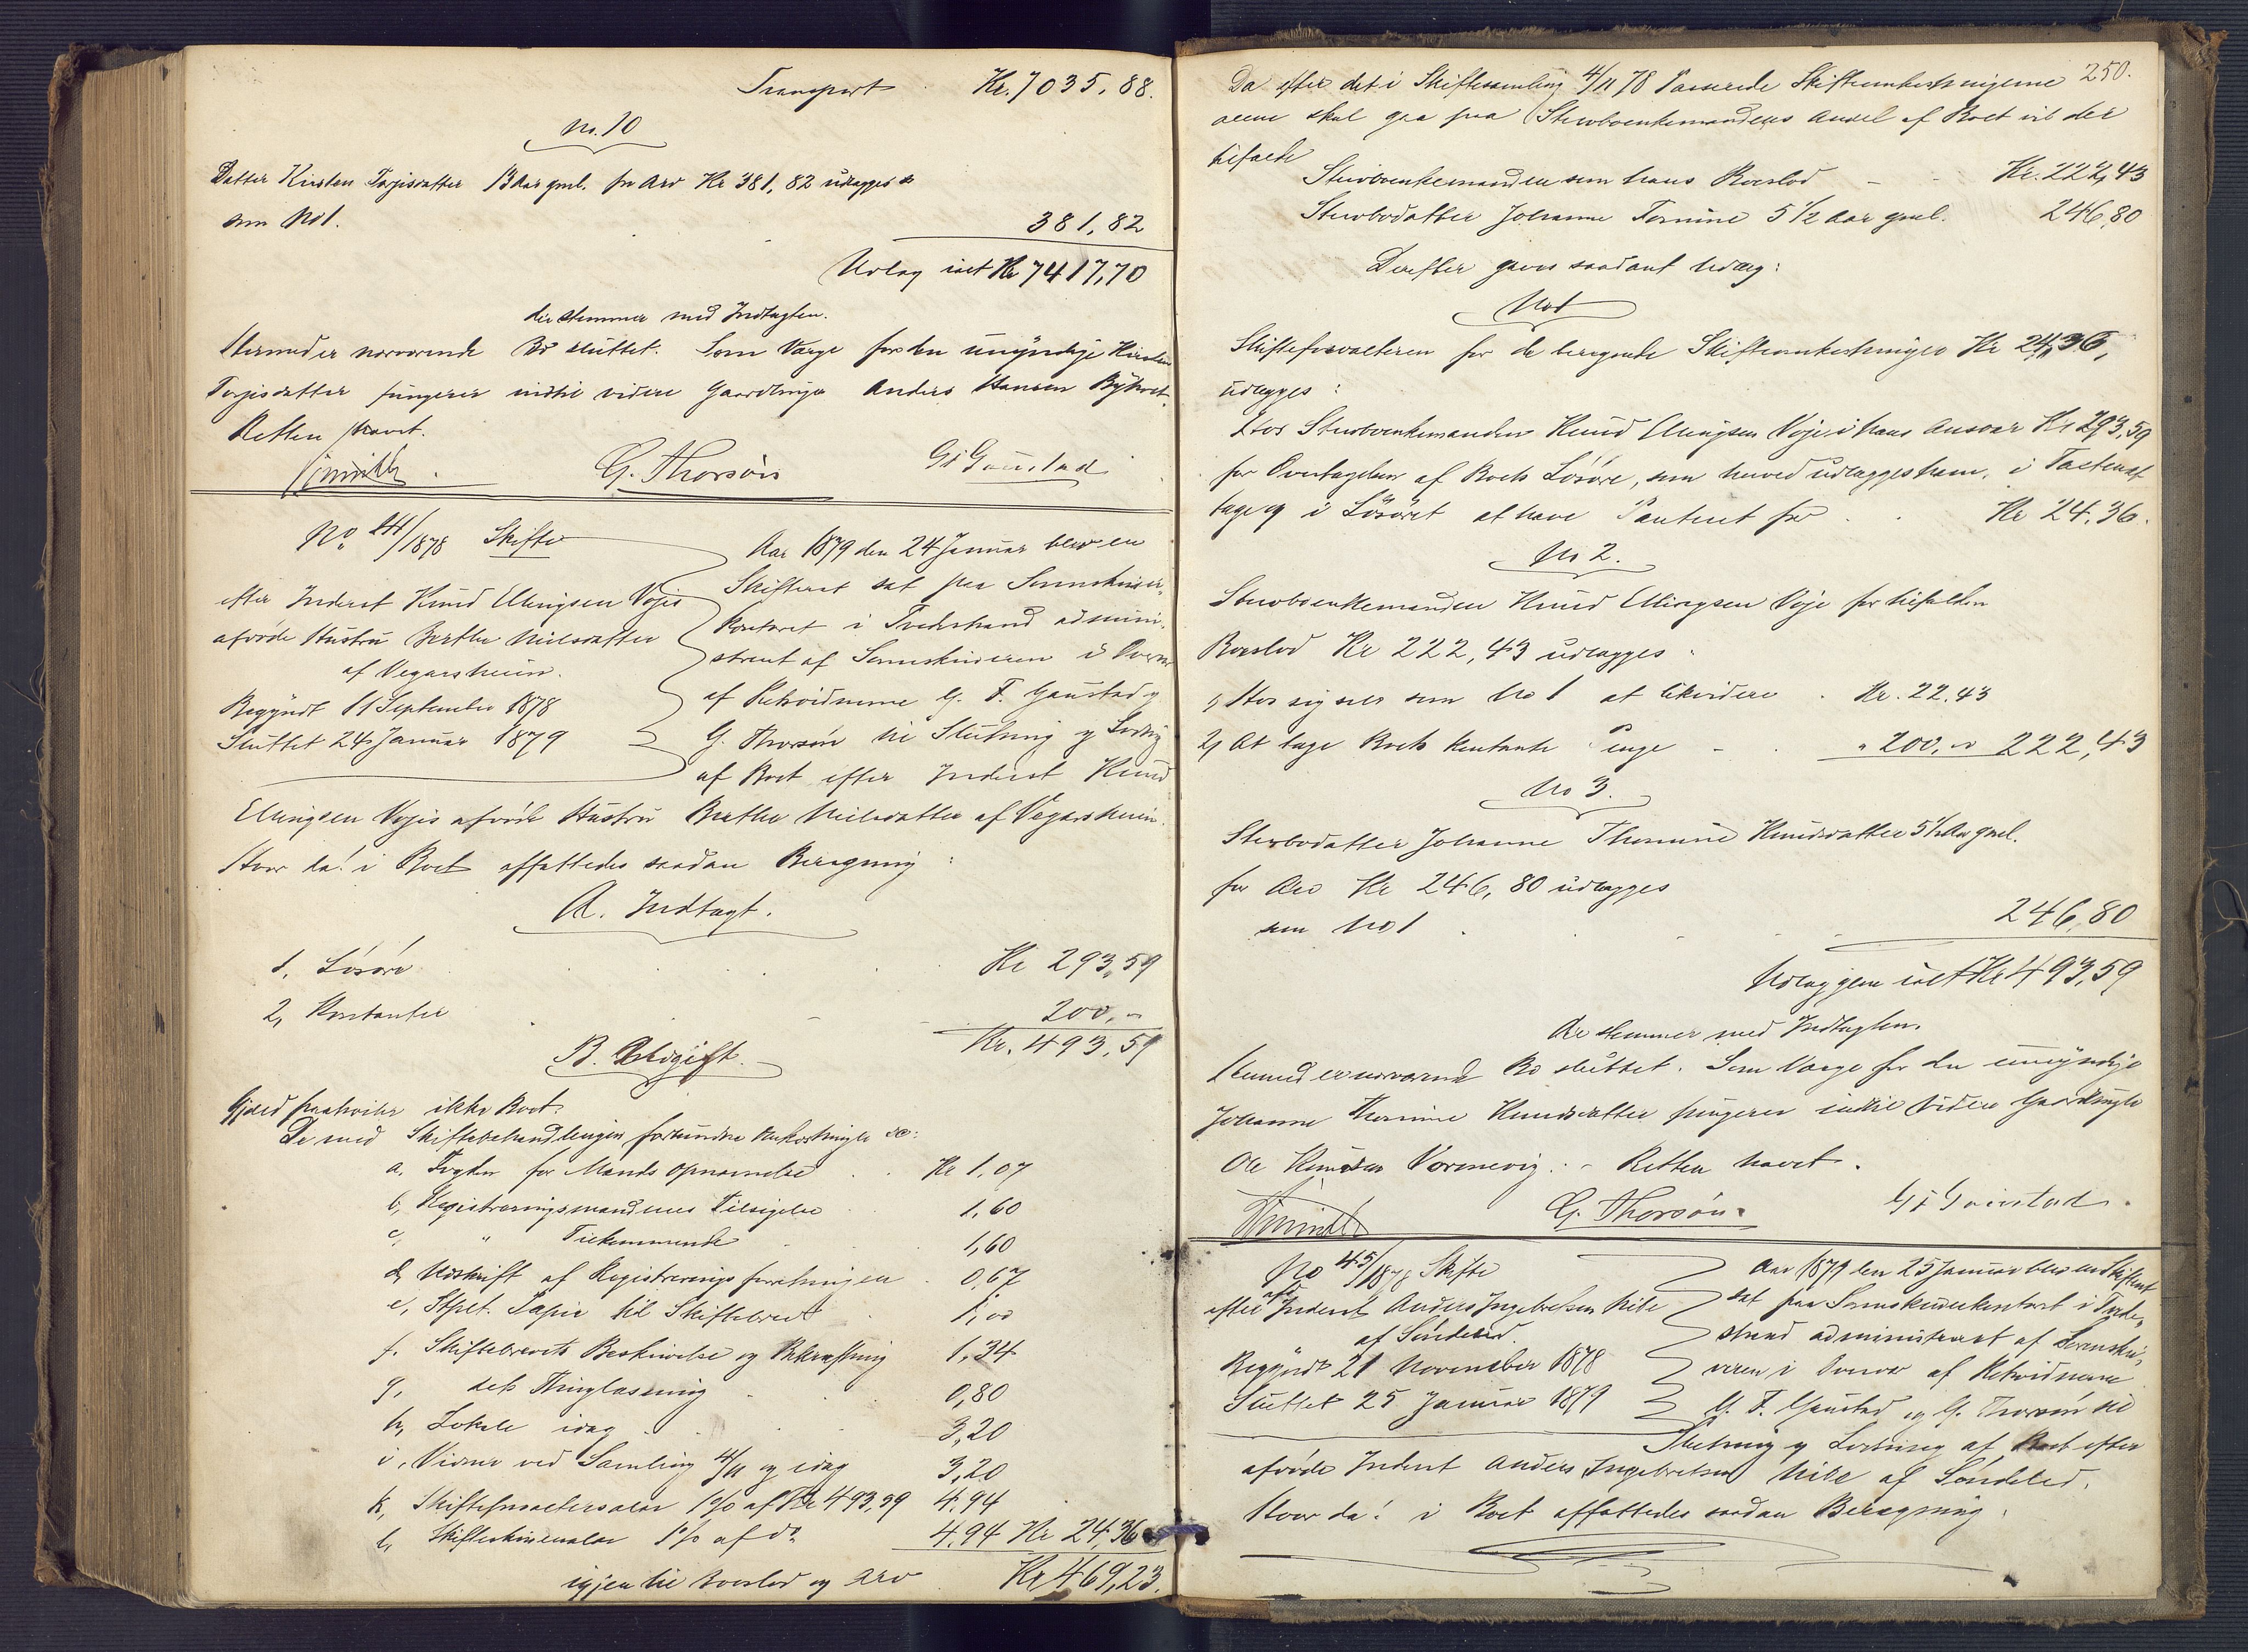 Transport Kr. 7035,88.
No. 10
Datter Kirsten Torjisdatter 13 Aar gml. for Arv Kr 381,82 udlægges
som No 1. 381,82
Udlæg ialt Kr 7417,70
der stemmer med Indtægten.
Hermed er nærværende Bo sluttet. Som Værge for den umyndige Kirsten
Torjisdatter fungerer indtil videre Gaardbruger Anders Hansen
Retten hævet.
G. Thorsön G F Goustad
No. 44/1878 Skifte
efter Inderst Knud Ellingsen Voje's
afdöde Hustru Berthe Nielsdatter
af Vegarsheien.
Begyndt 11 September 1878
Sluttet 24 Januar 1879
Aar 1879 den 24 Januar blev en
Skifteret sat paa Sorenskriver-
kontoret i Tvedestrand admini-
streret af Sorenskriveren i Overvær
af Retsvidnerne G. F. Goustad og
G. Thorsön til Slutning og Lodning
af Boet efter Inderst Knud
Ellingsen Vojes afdöde Hustru Berthe Nielsdatter af Vegarsheien.
Hvor da! i Boet affattedes saadan Beregning:
A. Indtægt.
1, Lösöre Kr 293,59
2, Kontanter 200,-
Kr. 493,59
B. Udgift.
Gjæld paahviler ikke Boet.
De med Skiftebehandlingen forbundne Omkostninger ere:
a, Fogden for Mænds Opnævnelse Kr 1,07
b, Registreringsmændenes Tilsigelse 1,60
c, " Tilkommende 1,60
d, Udskrift af Registreringsforretningen 0,67
e, Stplt. Papir til Skiftebrevet 1,00
f, Skiftebrevets Beskrivelse og Bekræftning 1,34
g, dets Thinglæsning 0,80
h, Lokale idag 3,20
i, Vidner ved Samling 4/11 og idag 3,20
k, Skifteforvaltersalær 1% af Kr 493,59 4,94
l, Skifteskriversalær 1% af do 4,94 Kr 24,36
igjen til Boeslod og Arv Kr 469,23.
250.
Da efter det i Skiftesamling 4/11 78 Passerede Skifteomkostningerne
alene skal gaa fra Stervboenkemandens Andel af Boet vil der
tilfalde
Stervboenkemanden som hans Boeslod Kr. 222,43
Stervbodatter Johanne Tomine 5 1/2 Aar gml. 246,80
Derefter gaves saadant Udlæg:
No 1
Skifteforvalteren for de beregnede Skifteomkostninger Kr 24,36,
udlægges:
Hos Stervboenkemanden Knud Ellingsen Voje i hans Ansvar Kr 293,59
for Overtagelsen af Boets Lösöre, som herved udlægges ham, i
tage og i Lösöret at have Panteret for Kr 24,36.
No 2.
Stervboenkemanden Knud Ellingsen Voje for tilfalden
Boeslod Kr 222,43 udlægges:
1, Hos sig selv som No 1 at likvidere Kr. 22,43
2, At tage Boets kontante Penge " 200,00 222,43
No 3.
Stervbodatter Johanne Thomine Knudsdatter 5 1/2 Aar gml.
for Arv Kr 246,80 udlægges
som No 1 246,80
Udlæggene ialt Kr 493,59
der stemmer med Indtægten.
Hermed er nærværende Bo sluttet. Som Værge for den umyndige
Johanne Thomine Knudsdatter fungerer indtil videre Gaardbruger
Ole Knudsen Vormevig. - Retten hævet.
G. Thorsön. G F Goustad.
No 45/1878 Skifte
efter afd Inderst Anders Ingebretsen
af Söndeled.
Begyndt 21 November 1878
Sluttet 25 Januar 1879
Aar 1879 den 25 Januar blev en Skifteret
sat paa Sorenskriverkontoret i Tvede-
strand administreret af Sorenskri-
veren i Overvær af Retsvidnerne
G. F. Goustad og G. Thorsön til
Slutning og Lodning af Boet efter
afdöde Inderst Anders Ingebretsen af Söndeled.
Hvor da! i Boet affattedes saadan Beregning: